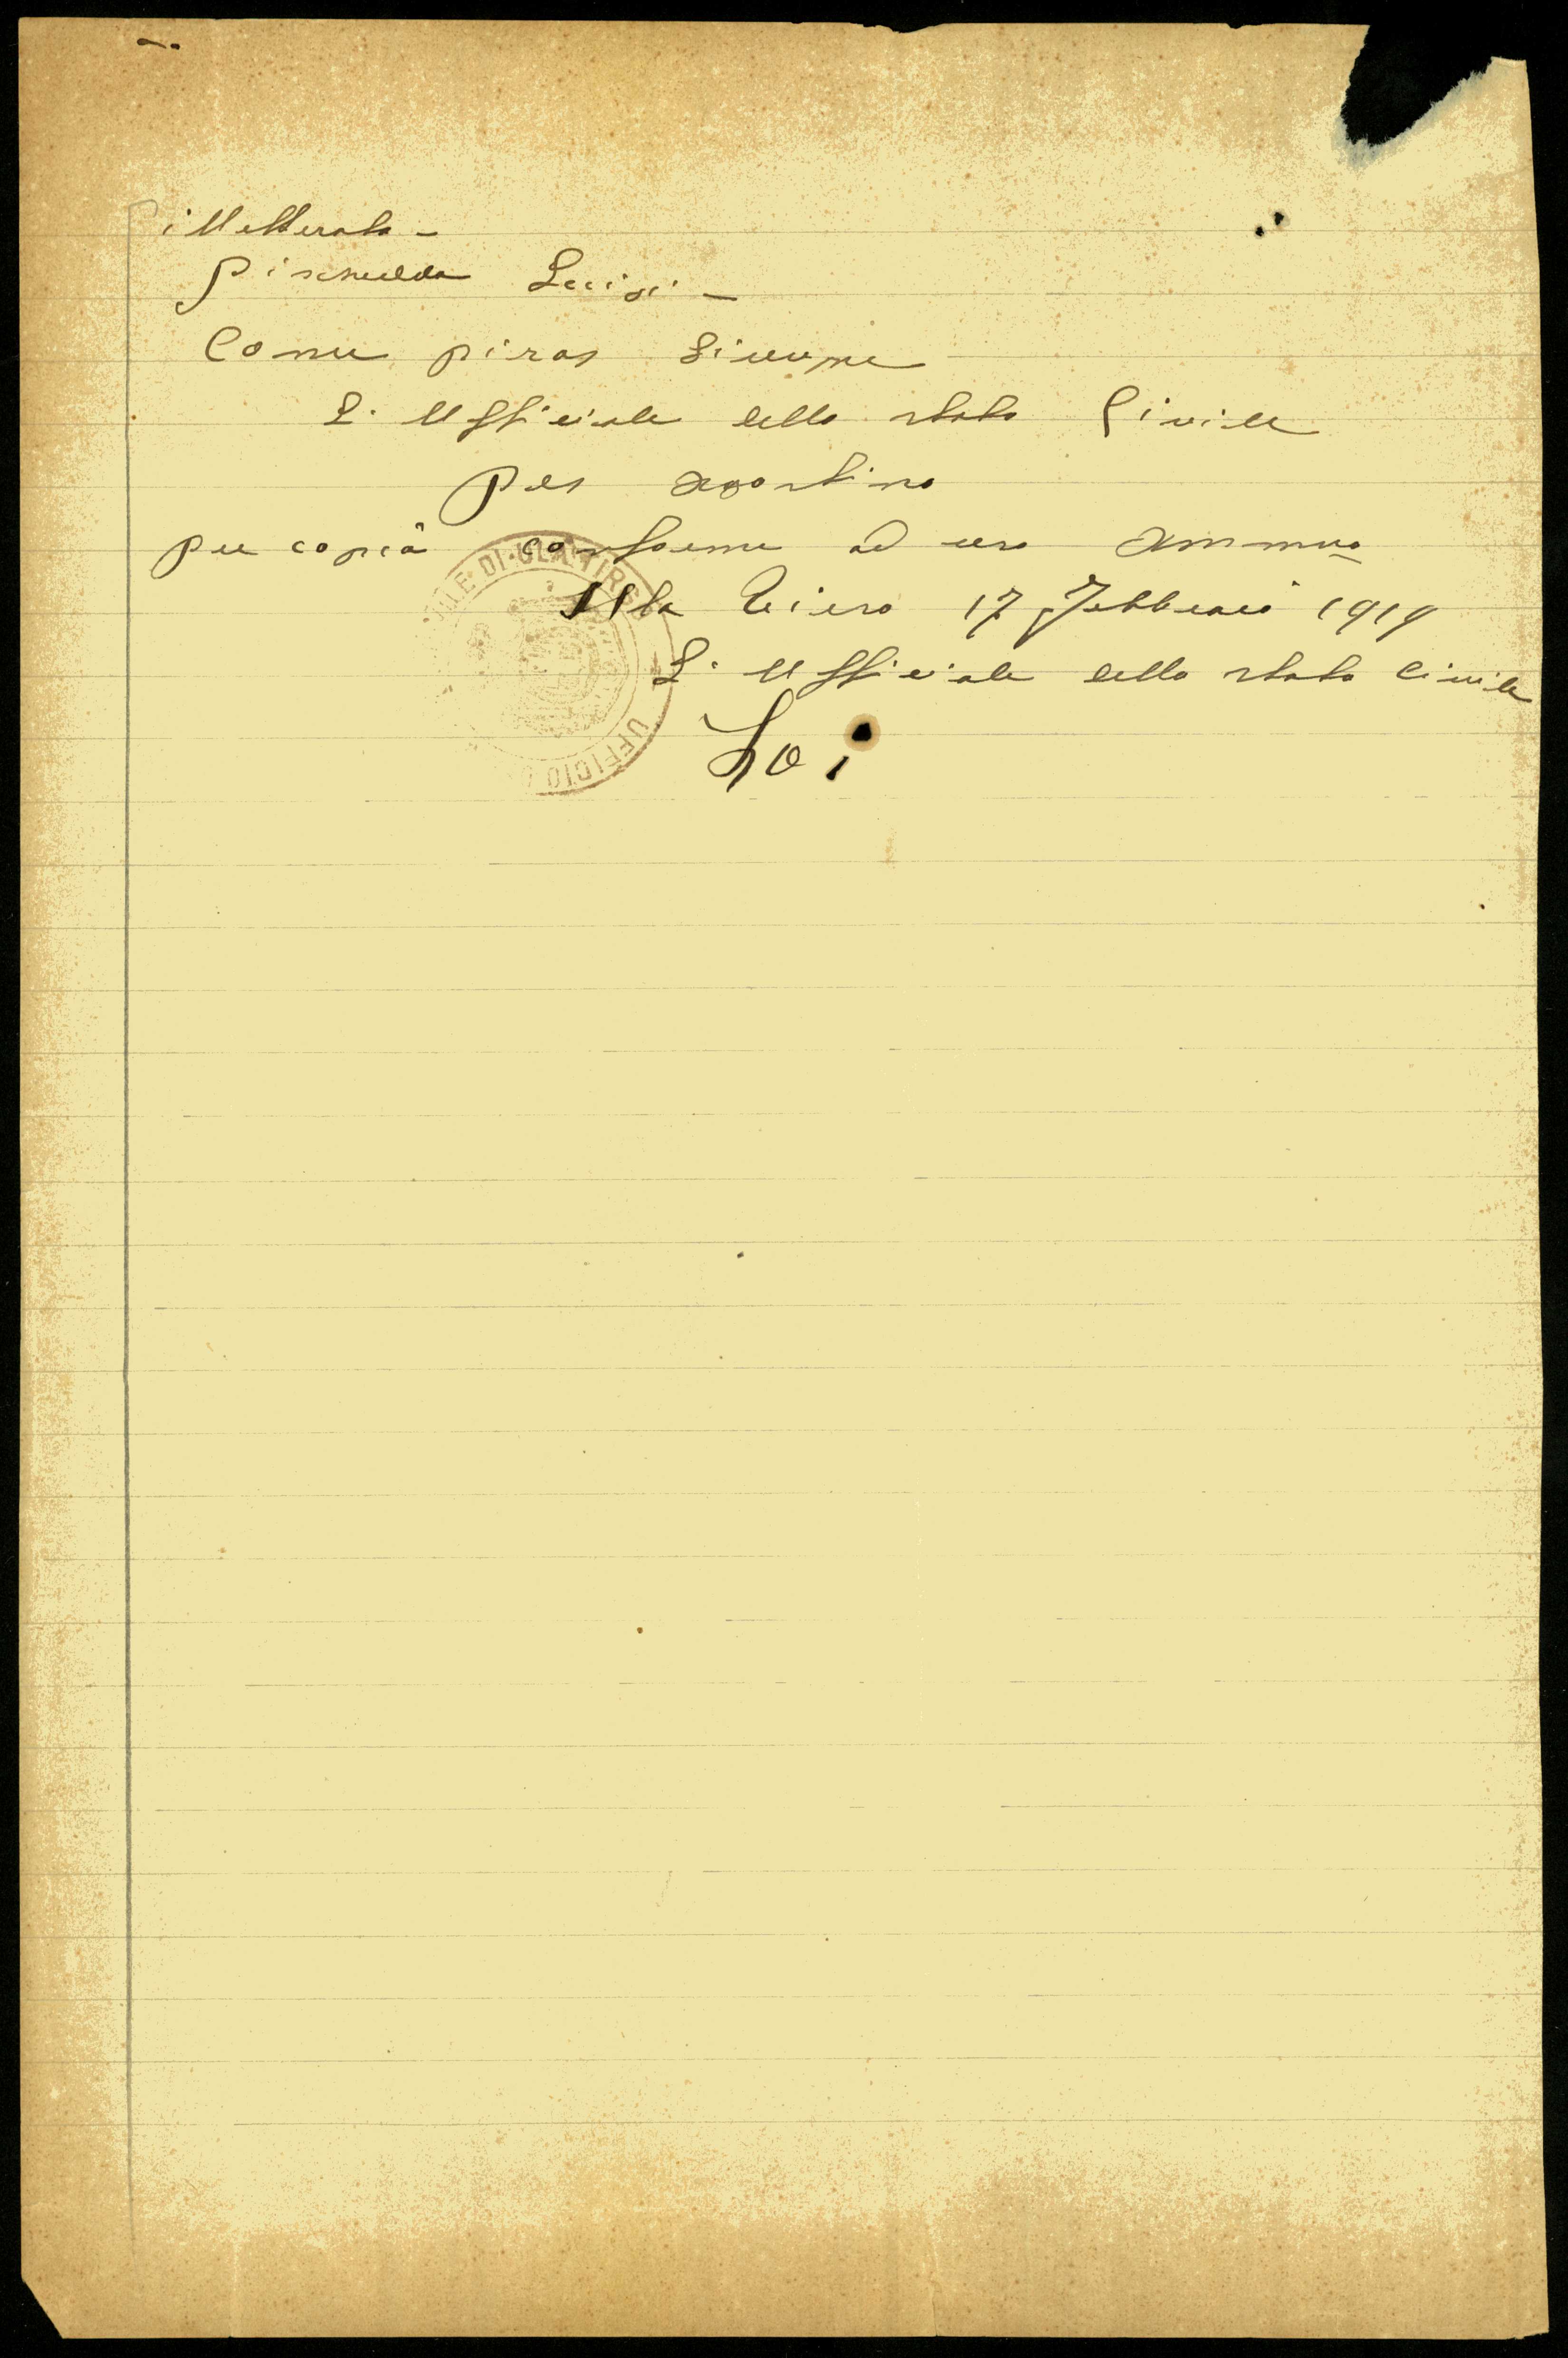 illetterato -
Pischedda Luigi -
Come, piras Simone
L'Ufficiale dello stato Civile
Pes Agostino
per copia conforme ad uso Ammvo
Ula Tirso 17 Febbraio 1919
L'Ufficiale dello stato Civile
Loi
DI ULA TIRS
UFFICIO